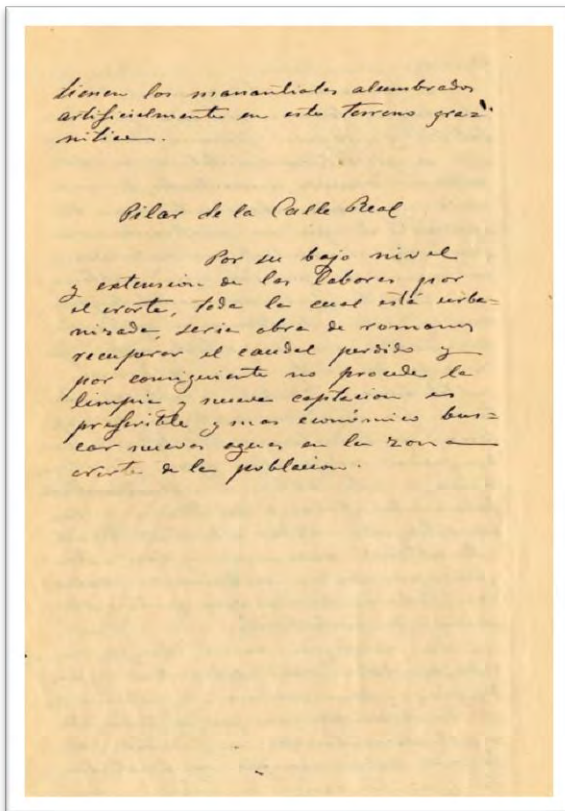 tienen los manantiales alumbrados
artificialmente en este terreno gra=
nitico.
Pilar de la Calle Real
Por su bajo nivel
y extension de las labores por
el norte, toda la cual está urba=
nizada, seria obra de romanos
recuperar el caudal perdido y
por consiguiente no procede la
limpia y nueva captacion es
preferible y mas económico bus=
car nuevas aguas en la zona
norte de la poblacion.